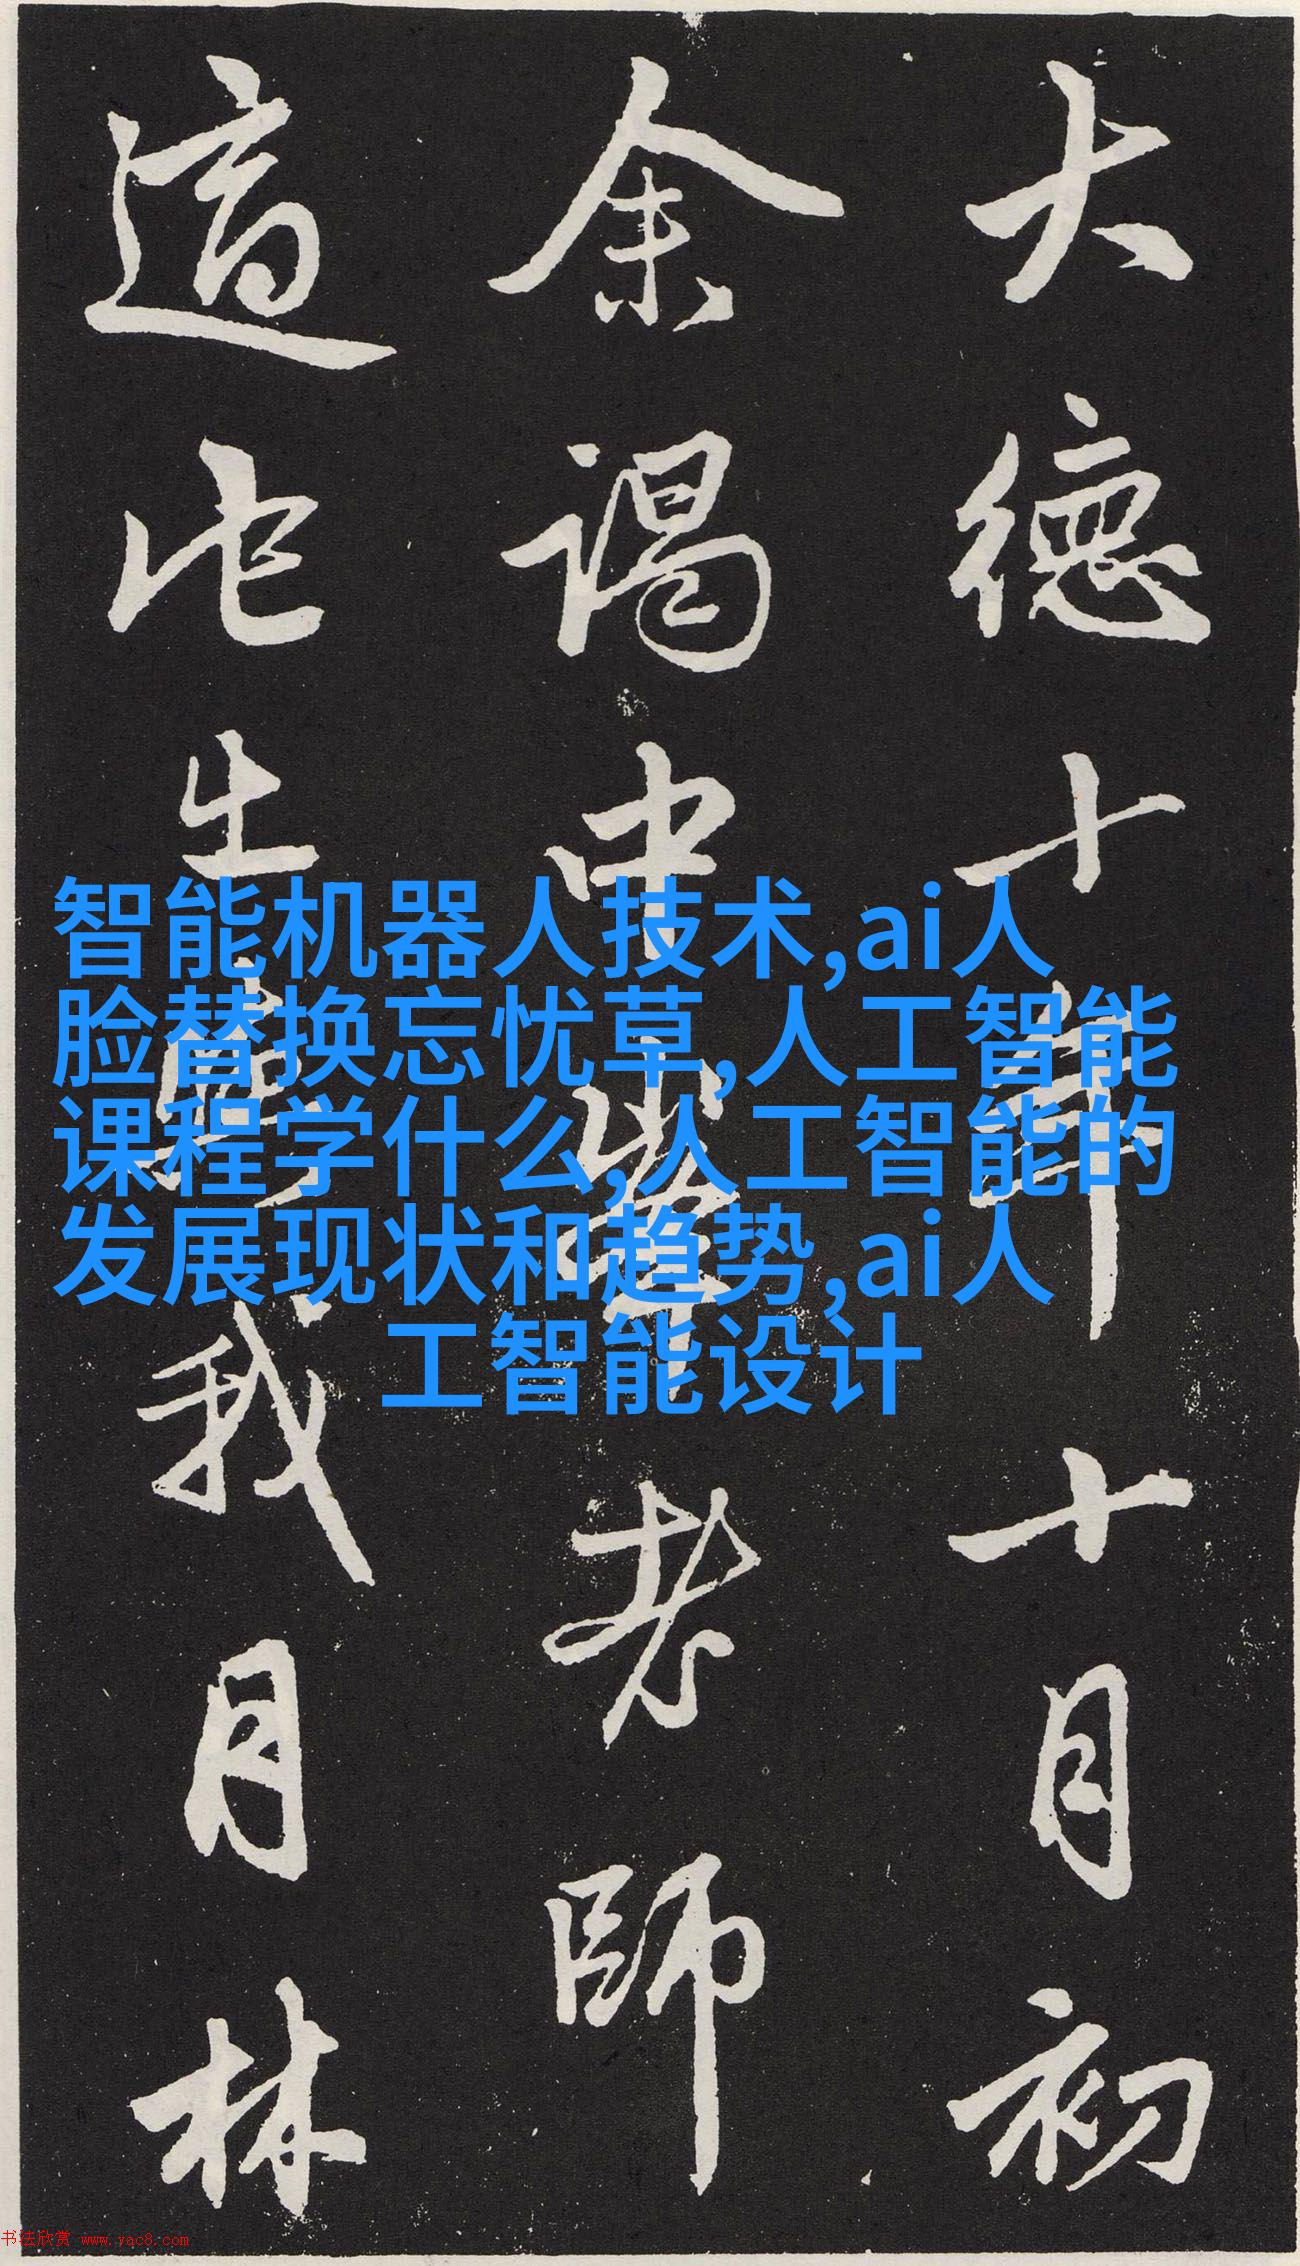 大德十年十月初
余謁中峯老師
適此我月林
智能机器人技术,ai人
脸替换忘忧草,人工智能
课程学什么,人工智能的
发展现状和趋势,ai人
工智能设计
书法欣赏 www.yac8.com